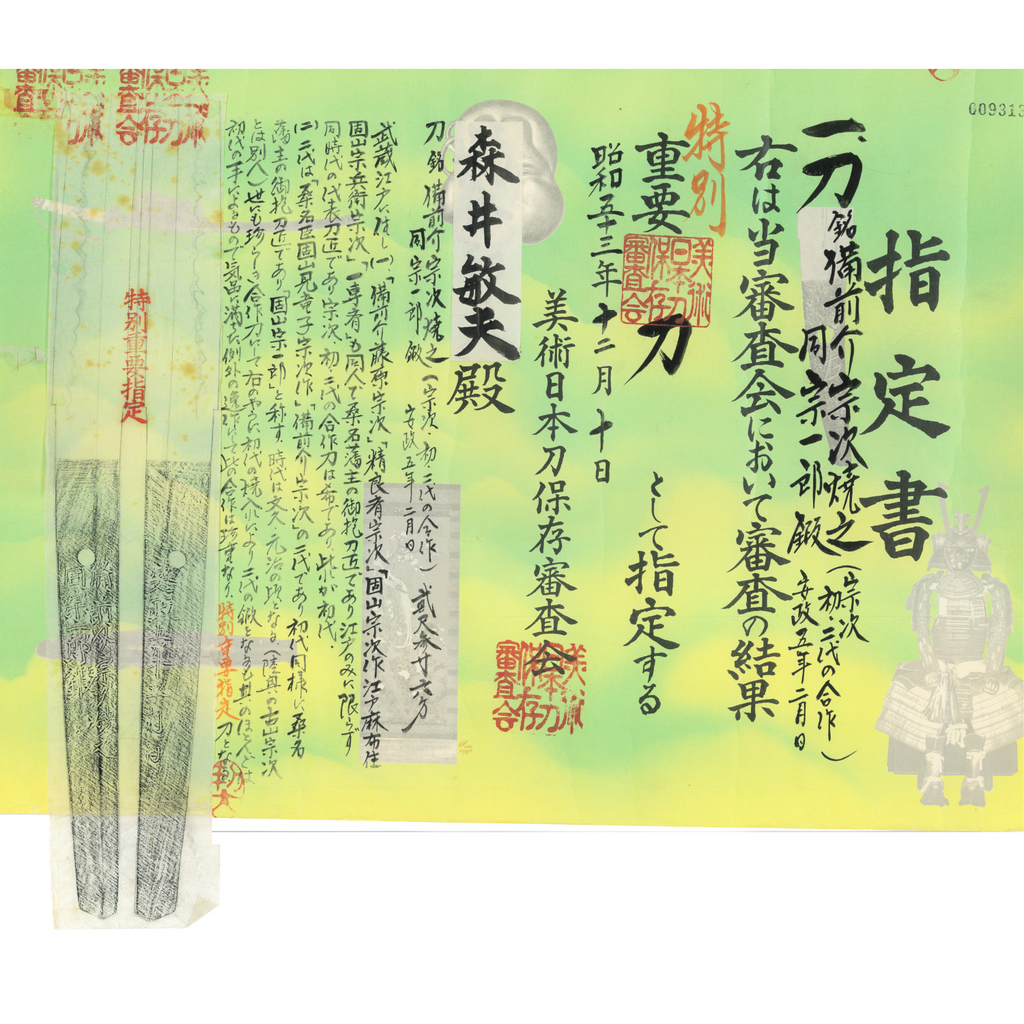 009313
指定書
一刀 銘 備前介宗次焼之(宗次 初、二代の合作)
同宗一郎鍛 安政五年二月日
右は当審査会において審査の結果
特別
重要刀 として指定する
美術日本刀保存審査会
昭和五十三年十二月十日
美術日本刀保存審査会
美術日本刀保存審査会
森井敏夫殿
刀 銘 備前介宗次焼之(宗次、初、二代の合作) 貳尺参寸六分
同宗一郎鍛 安政五年二月日
武蔵江戸に住し(一)、「備前介藤原宗次」「精良斉宗次」「固山宗次作江戸麻布住
固山宗兵衛宗次」「一専斉」も同人で桑名藩主の御抱刀匠であり江戸のみに限らず
同時代の代表刀匠であり宗次、初、二代の合作刀は希であり、此が初代、
(二)二代は「桑名臣固山
宗次作」「備前介宗次」の二代であり初代同様に桑名
藩主の御抱刀匠であり「固山宗一郎」と称す、時代は文久、元治の
となる(陸奥の古山宗次
とは別人)世にも珍らしき合作刀にて右のやうに初代の焼入により二代の鍛となるも
のほとんどは
初代の手によるもので気品に満ちた例外の
此の合作は珍重なり、特別重要指定刀となる
特別重要指定